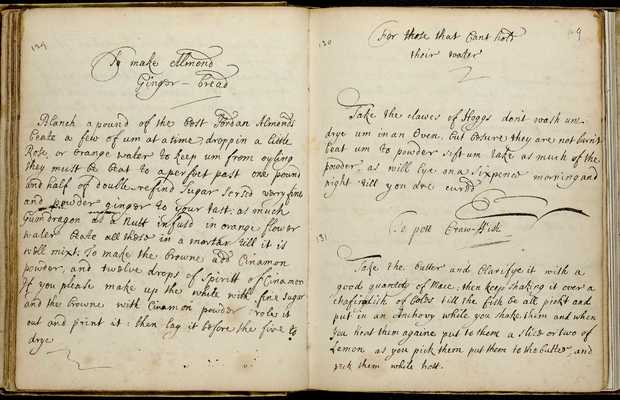 129
To make Almond
Ginger-bread
Blanch a pound of the best Jordan Almonds
beate a few of um at a time, dropp in a little
Rose, or orange water to keep um from oyling
they must be beat to a perfect past one pound
and half of double refind Sugar serced very fine
and powder ginger to your tast: as much
Gumdragon as a Nutt infusd in orange flower
water beate all these in a mortar till it is
well mixt: To make the browne add Cinamon
powder, and twelve drops of Spiritt of Cinamon
If you please make up the white with fine sugar
and the browne with Cinamon powder role it
out and print it: then lay it before the fire to
drye
130
9
For those that Cant hold
their water
Take the clawes of Hoggs dont wash um
drye um in an Oven. but besure they are not burnt
beat um to powder sift um take as much of the
powder, as will lye on a Sixpence morning and
night till you are cur'd
131
To pott Craw-Fish
Take the butter and Clarifye it with a
good quantety of Mace; then keep shaking it over a
chafindish of Coles till the fish be all pickt and
put in an Anchovy while you shake them and when
you heat them againe, put to them a slice or two of
Lemon as you pick them put them to the butter, and
pick them while hott.